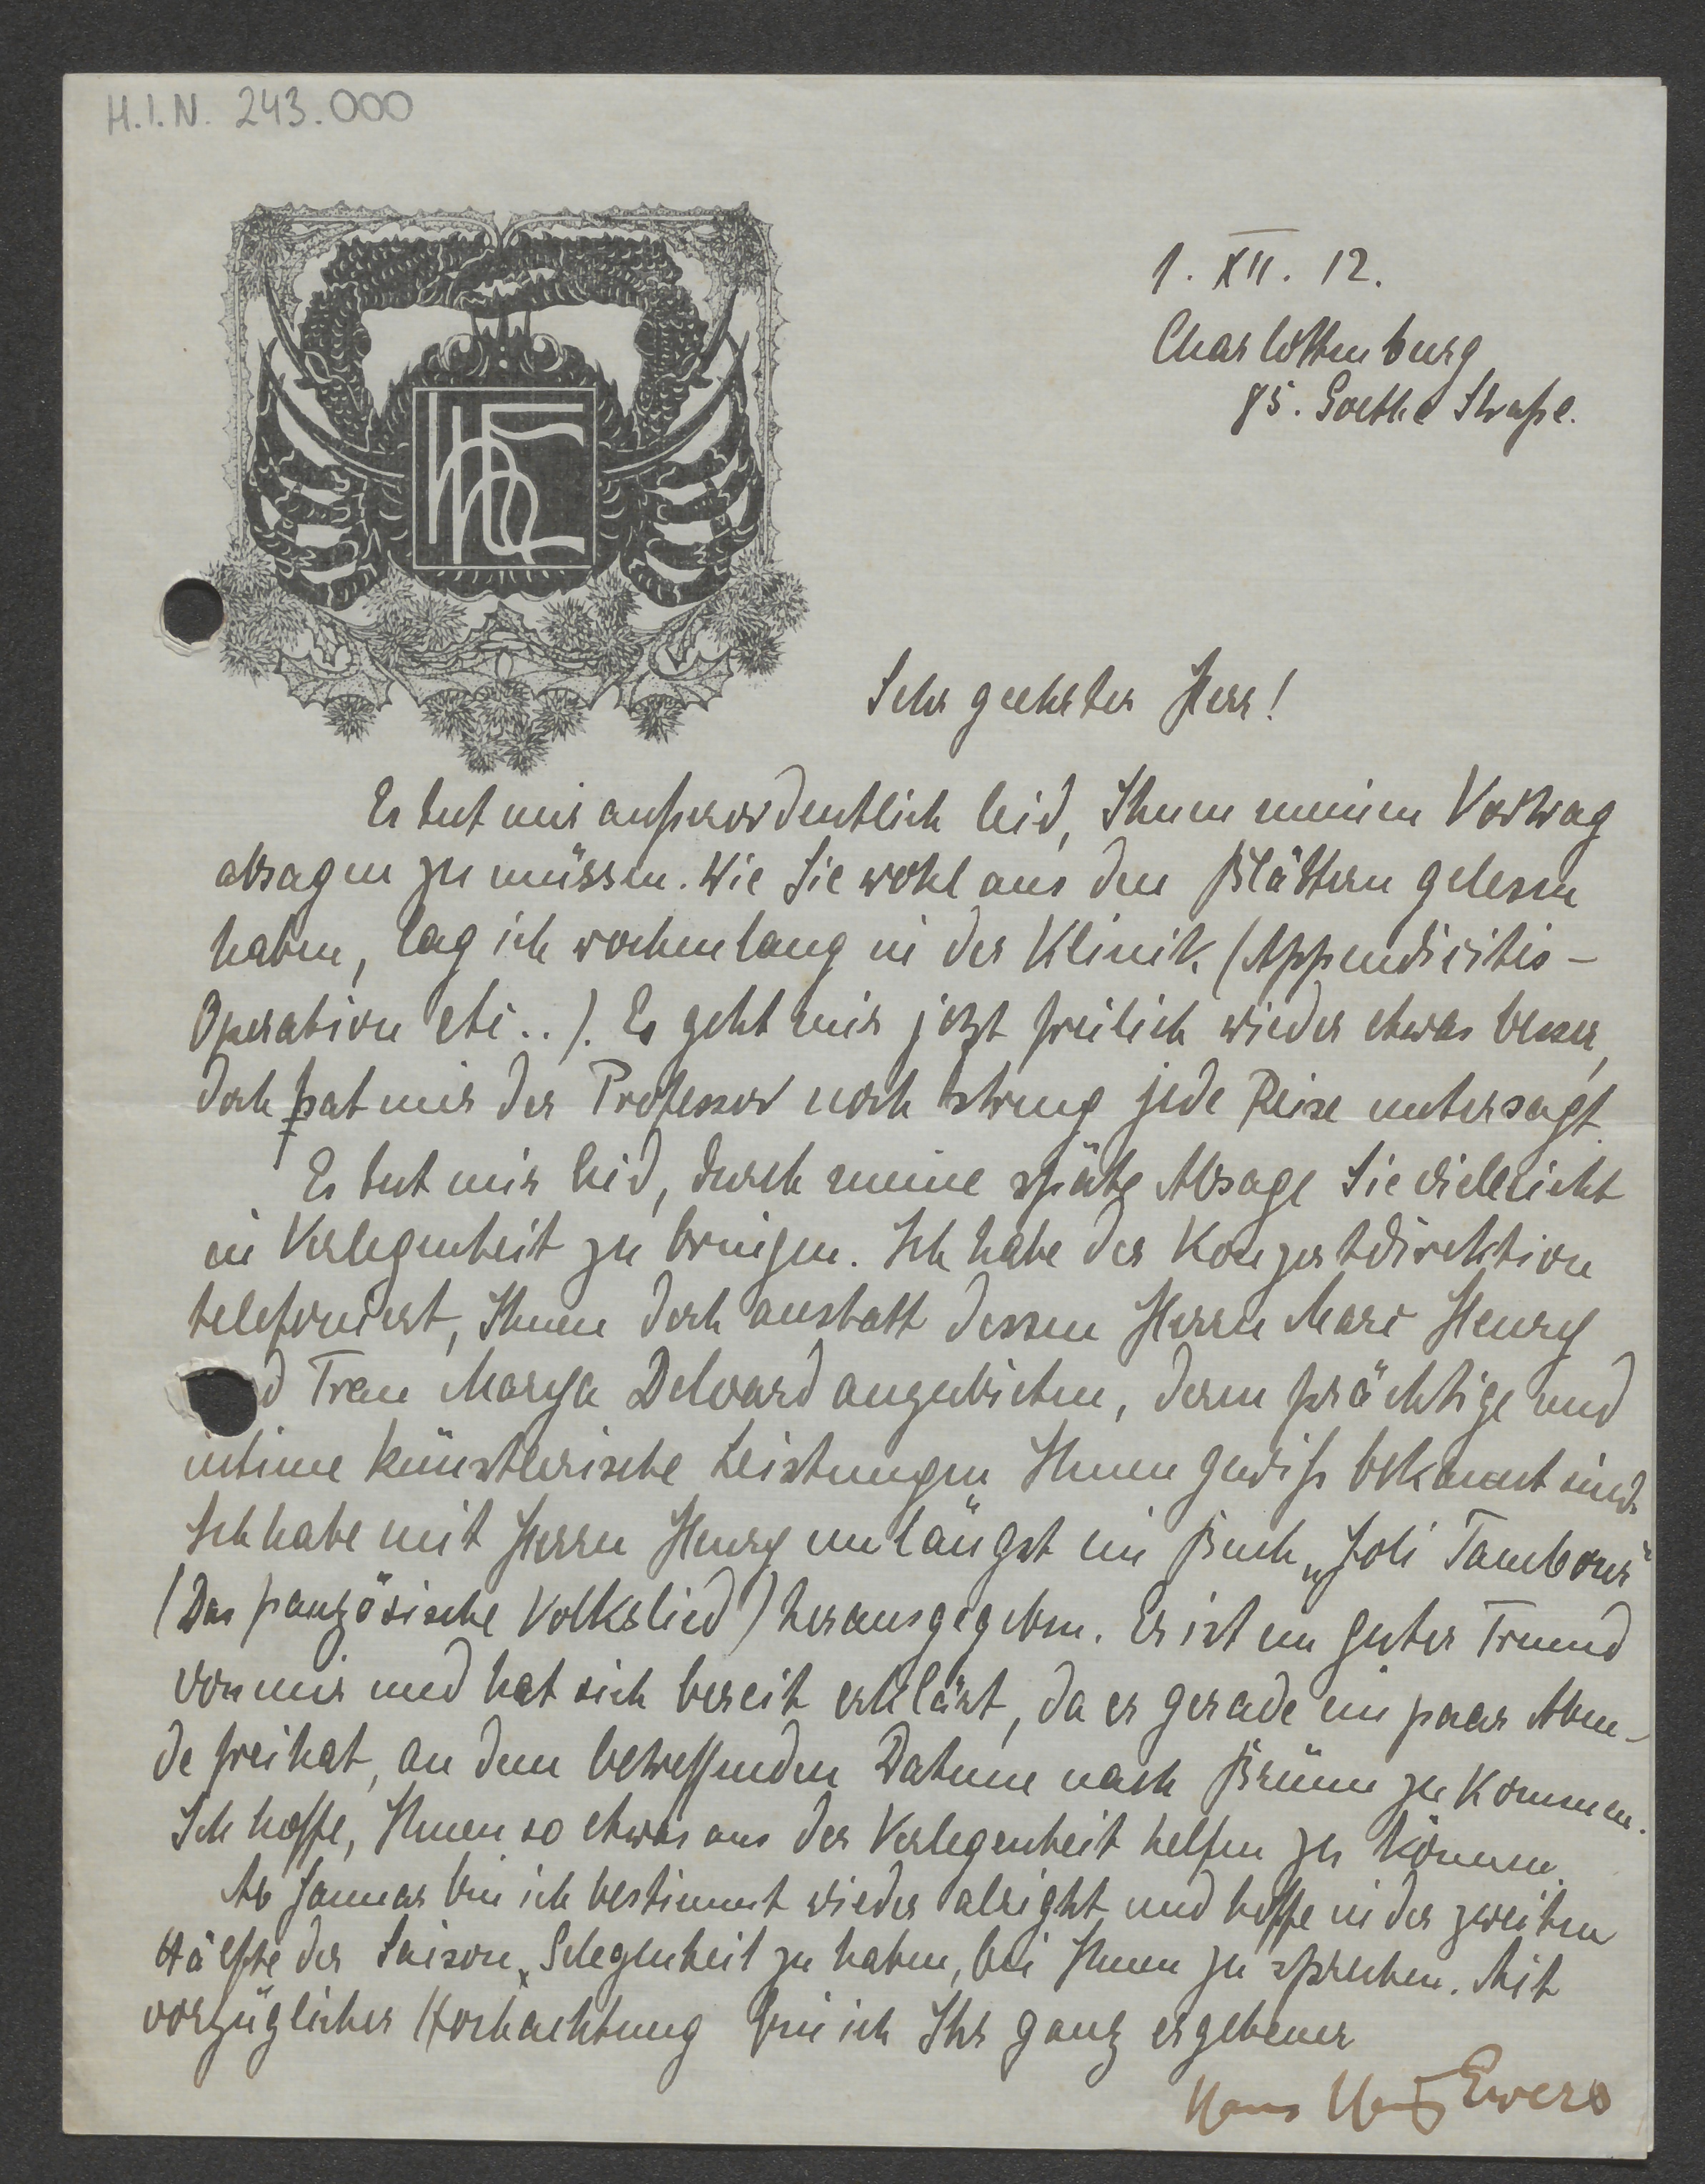 H.I.N. 243.000
1. XII. 12.
Charlottenburg
85. Goethe Straße.
HHE
Sehr geehrter Herr!
Es tut mir außerordentlich leid, Ihnen meinen Vortrag
absagen zu müssen. Wie Sie wohl aus den Blättern gelesen
haben, lag ich wochenlang in der Klinik (Appendicitis-
Operation etc..). Es geht mir jetzt freilich wieder etwas besser,
doch hat mir der Professor noch streng jede Reise untersagt.
Es tut mir leid, durch meine späte Absage Sie vielleicht
in Verlegenheit zu bringen. Ich habe der Konzertdirektion
telefoniert, Ihnen doch anstatt dessen Herrn Marc Henry
d Frau Marya Delvard anzubieten, deren prächtige und
intime künstlerische Leistungen Ihnen gewiß bekannt sind.
Ich habe mit Herrn Henry unlängst ein Buch „Joli Tambour"
(Das französische Volkslied) herausgegeben. Er ist ein guter Freund
von mir und hat sich bereit erklärt, da er gerade ein paar Aben-
de frei hat, an dem betreffenden Datum nach Brünn zu kommen.
Ich hoffe, Ihnen so etwas aus der Verlegenheit helfen zu können.
Ab Januar bin ich bestimmt wieder alright und hoffe in der zweiten
Hälfte der Saison, Gelegenheit zu haben, bei Ihnen zu sprechen. Mit
vorzüglicher Hochachtung bin ich Ihr ganz ergebener
Hanns Heinz Ewers